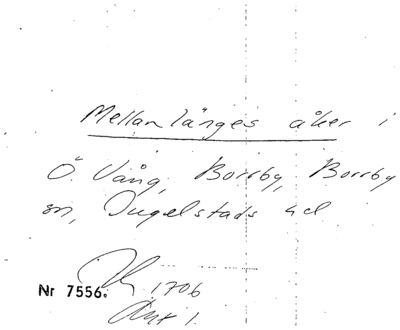 Mellanlänges åker i
Ö. Vång, Borrby, Borrby
sn, Ingelstads hd
Nr 7556. 1706
Ant 1.